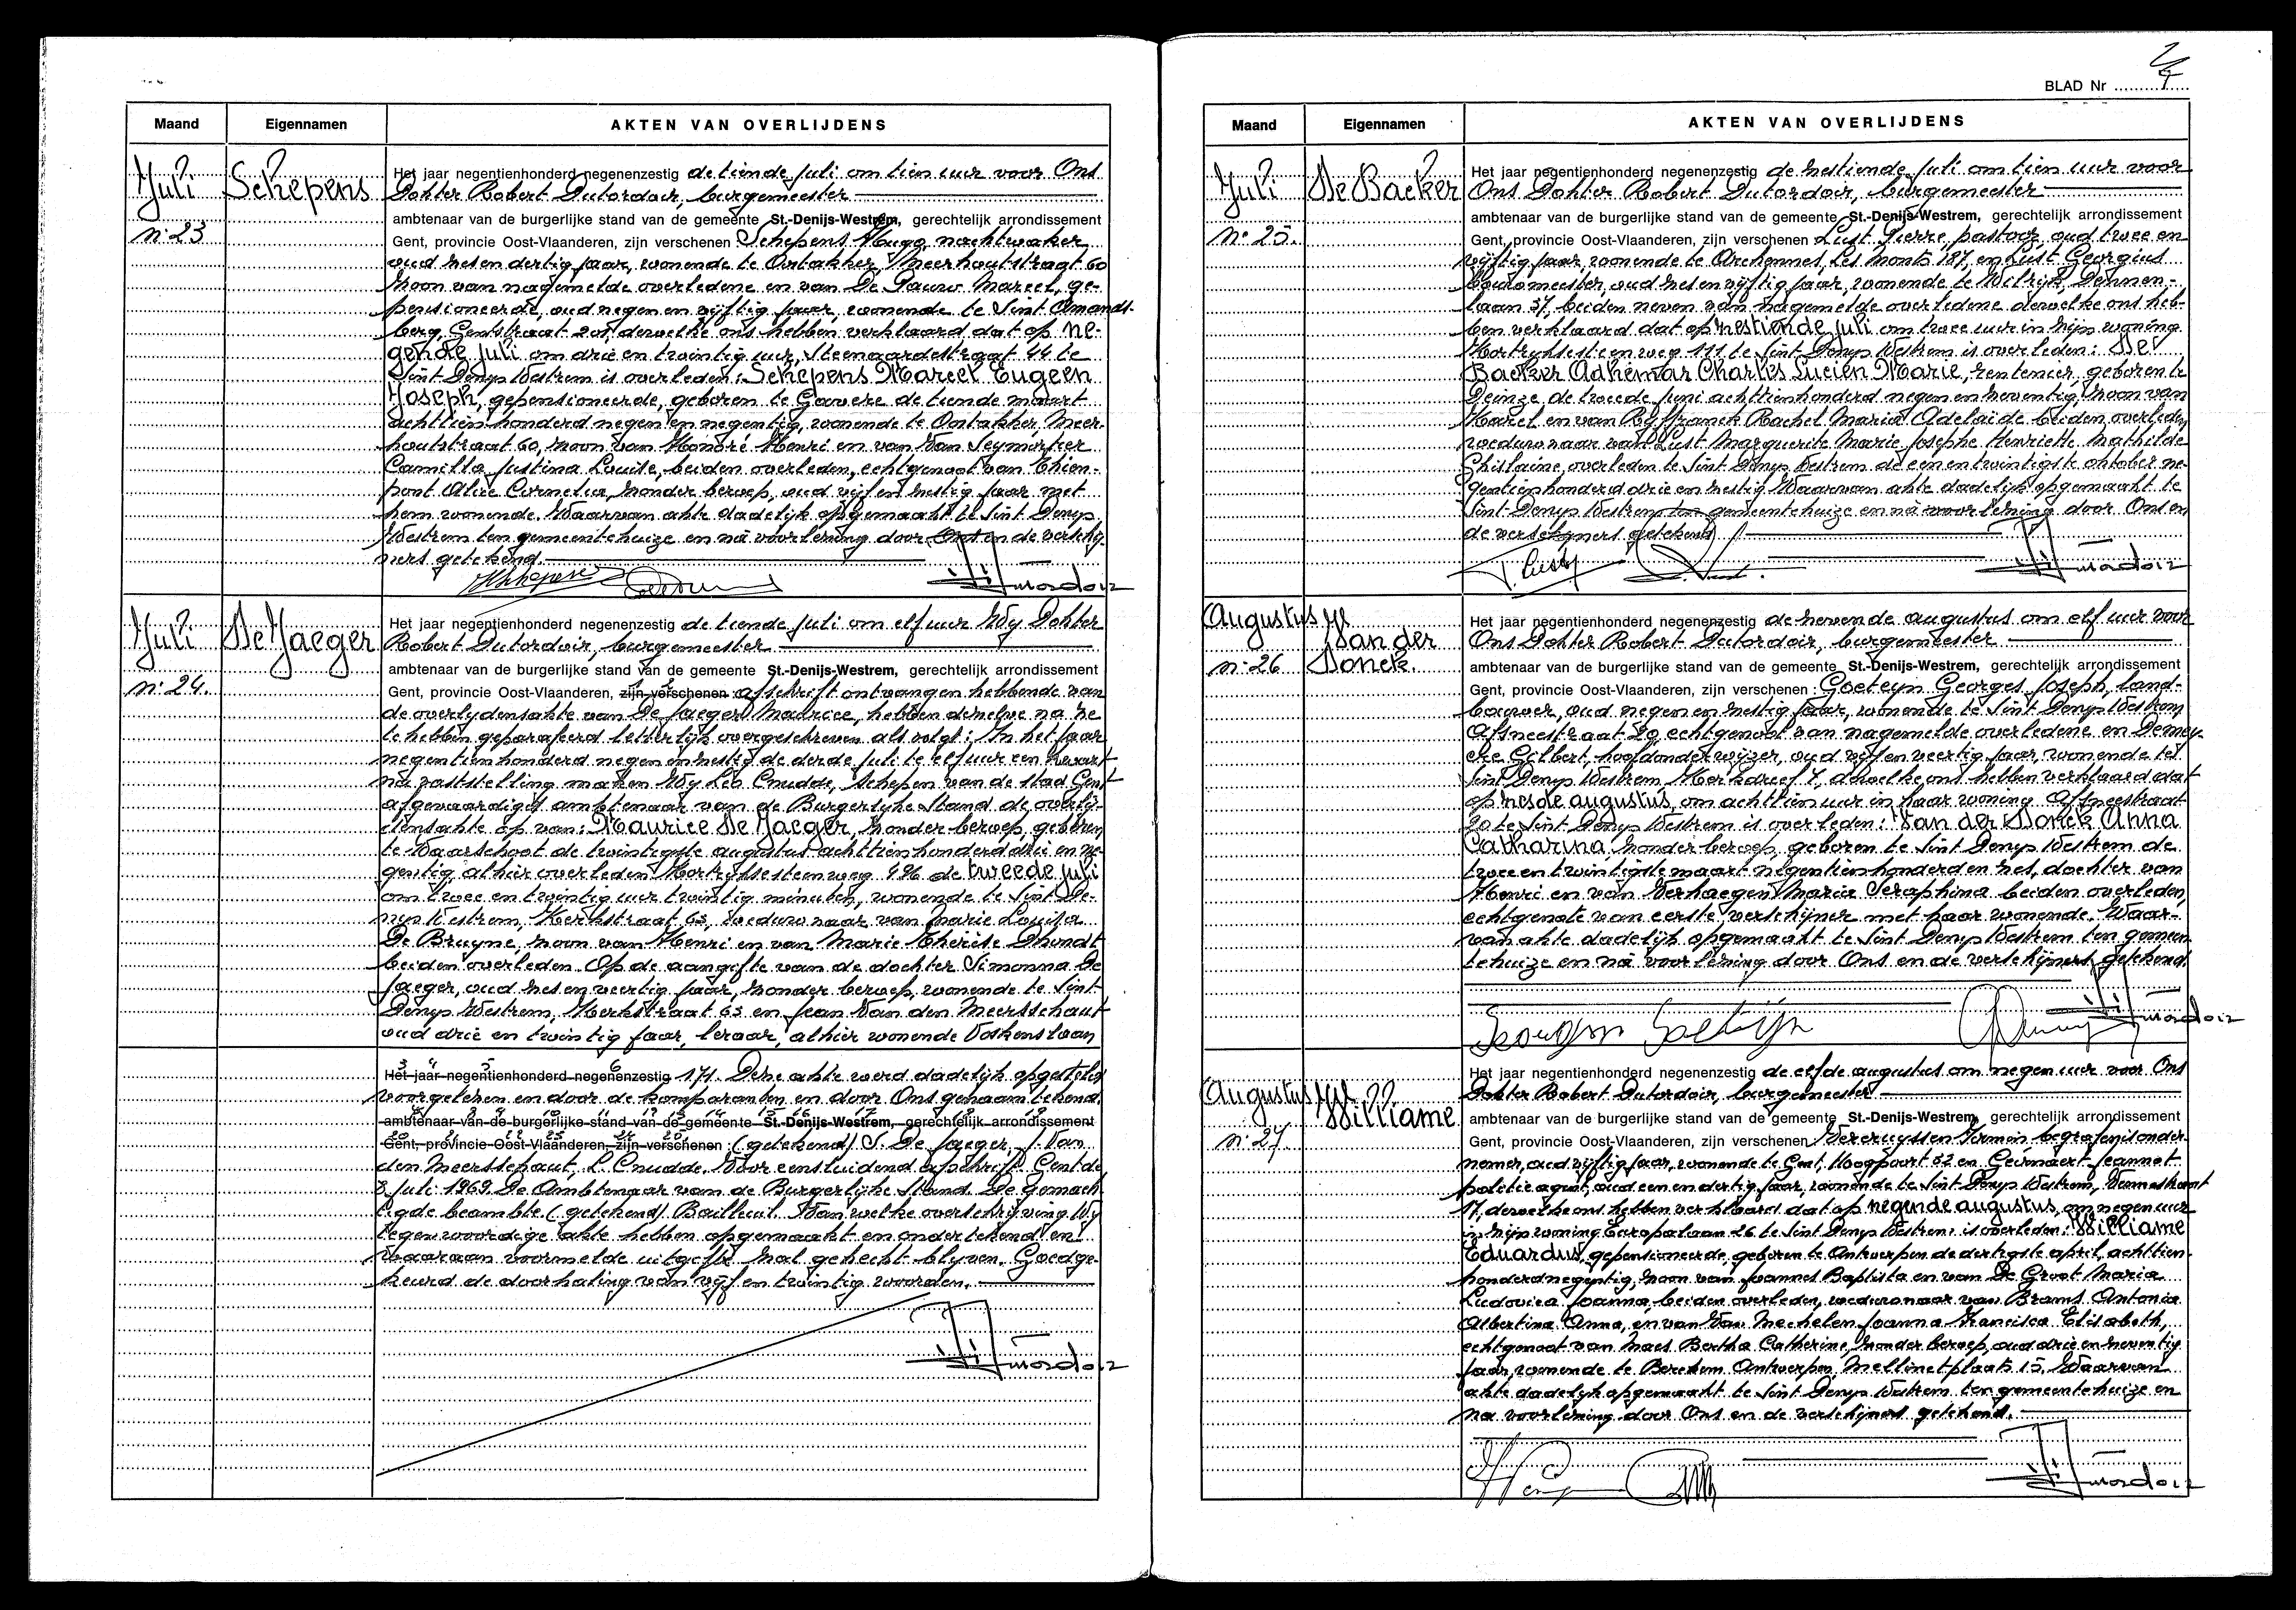 Maand
Eigennamen
AKTEN VAN OVERLIJDENS
Juli
Schepens
n: 23
Het jaar negentienhonderd negenenzestig de tiende Juli om tien uur voor Ons
Dokter Robert Dutordoir, burgemeester
ambtenaar van de burgerlijke stand van de gemeente St.-Denijs-Westrem, gerechtelijk arrondissement
Gent, provincie Oost-Vlaanderen, zijn verschenen Schepens Hugo, nachtwaker
oud zes en dertig jaar, wonende te Oostakker, Meerhoutstraat 60
zoon van nagemelde overledene en van De Pauw Marcel, ge-
pensioneerde, oud negen en vijftig jaar, wonende te Sint Amands-
berg, Gentstraat 201, dewelke ons hebben verklaard dat op ne-
gende Juli om drie en twintig uur, Steenaardestraat 44 te
Sint Denys Westrem is overleden: Schepens Marcel Eugeen
Joseph, gepensioneerde, geboren te Gavere de tiende maart
achttien honderd negen en negentig, wonende te Oostakker Meer-
houtstraat 60, zoon van Honoré Henri en van Van Seymortier
Camilla Justina Louise, beiden overleden, echtgenoot van Thien-
pont Alice Cornelia, zonder beroep, oud vijf en zestig jaar met
hem wonende. Waarvan akte dadelijk opgemaakt te Sint Denys
Westrem ten gemeentehuize en na voorlezing door Ons en de verschij-
ners getekend.
Juli
De Jaeger
n: 24.
Het jaar negentienhonderd negenenzestig de tiende Juli om elf uur Wij Dokter
Robert Dutordoir, burgemeester
ambtenaar van de burgerlijke stand van de gemeente St.-Denijs-Westrem, gerechtelijk arrondissement
Gent, provincie Oost-Vlaanderen, zijn verschenen: afschrift ontvangen hebbende van
de overlydensakte van De Jaeger Maurice, hebben dezelve na ze
te hebben geparafeerd letterlijk overgeschreven als volgt: In het jaar
negentienhonderd negen en zestig de derde Juli te elf uur een kwart
na vaststelling maken Wij Leo Cnudde, Schepen van de stad Gent
afgevaardigd ambtenaar van de Burgerlyke Stand de overlij-
densakte op van: Maurice De Jaeger, zonder beroep, geboren
te Waarschoot de twintigste augustus achttienhonderd drie en ne-
gentig, alhier overleden Kortrijksesteenweg 996 de tweede Juli
om twee en twintig uur twintig minuten, wonende te Sint De-
nys Westrem, Kerkstraat 63, weduwnaar van Marie Louisa
De Bruyne, zoon van Henri en van Marie Thérèse Dhondt
beiden overleden. Op de aangifte van de dochter Simonna De
Jaeger, oud zes en veertig jaar, zonder beroep, wonende te Sint
Denys Westrem, Kerkstraat 63 en Jean Van den Meersschaut
oud drie en twintig jaar, leraar, alhier wonende Voskenslaan
3 4 5 6
Het jaar negentienhonderd negenenzestig 171. Deze akte werd dadelijk opgesteld
voorgelezen en door de komparanten en door Ons genaamtekend
ambtenaar van de burgerlijke stand van de gemeente St.-Denijs-Westrem, gerechtelijk arrondissement
Gent, provincie Oost-Vlaanderen, zijn verschenen: (getekend) S. De Jaeger, J. Van
den Meersschaut, L. Cnudde. Voor eensluidend afschrift. Gent de
8 Juli 1969. De Ambtenaar van de Burgerlijke Stand. De gemach-
tigde beambte (getekend) Bailleuil. Van welke overschrijving Wij
tegenwoordige akte hebben opgemaakt en ondertekend en
waaraan voormelde uitgifte zal gehecht blyven. Goedge-
keurd de doorhaling van vijf en twintig woorden.
BLAD Nr
Maand
Eigennamen
AKTEN VAN OVERLIJDENS
Juli
De Backer
n° 25.
Het jaar negentienhonderd negenenzestig de zestiende Juli om tien uur voor
Ons Dokter Robert Dutordoir, burgemeester
ambtenaar van de burgerlijke stand van de gemeente St.-Denijs-Westrem, gerechtelijk arrondissement
Gent, provincie Oost-Vlaanderen, zijn verschenen Lust Pierre, pastoor, oud twee en
vijftig jaar, wonende te Archennes, Les Monts 187, en Lust Georgius
bouwmeester, oud zes en vijftig jaar, wonende te Wilrijk, Dennen-
laan 37, beiden neven van nagemelde overledene dewelke ons heb-
ben verklaard dat op zestiende Juli om twee uur in zijn woning
Kortrijksesteenweg 111 te Sint Denys Westrem is overleden: De
Backer Adhémar Charles Lucien Marie, rentenier, geboren te
Deinze de tweede Juni achttienhonderd negen en zeventig, zoon van
Karel en van Ryffranck Rachel Maria Adelaide beiden overleden
weduwnaar van Lust Marguerite Marie Josephe Henriette Mathilde
Ghislaine, overleden te Sint Denys Westrem de een en twintigste oktober ne-
gentienhonderd drie en zestig. Waarvan akte dadelijk opgemaakt te
Sint-Denys Westrem ten gemeentehuize en na voorlezing door Ons en
de verschijners getekend.
Augustus
Van der
Donck.
n: 26
Het jaar negentienhonderd negenenzestig de zevende augustus om elf uur voor
Ons Dokter Robert Dutordoir, burgemeester
ambtenaar van de burgerlijke stand van de gemeente St.-Denijs-Westrem, gerechtelijk arrondissement
Gent, provincie Oost-Vlaanderen, zijn verschenen: Goeteyn Georges Joseph, land-
bouwer, oud negen en zestig jaar, wonende te Sint Denys Westrem,
Afsneestraat 20 echtgenoot van nagemelde overledene en Demey-
ere Gilbert, hoofdonderwijzer, oud vijf en veertig jaar, wonende te
Sint Denys Westrem, Kerkdreef 7, dewelke ons hebben verklaard dat
op zesde augustus, om achttien uur in haar woning Afsneestraat
20 te Sint Denys Westrem is overleden: Van der Donck Anna
Catharina, zonder beroep, geboren te Sint Denys Westrem de
twee en twintigste maart negentienhonderd en zes, dochter van
Henri en van Verhaegen Maria Seraphina beiden overleden,
echtgenote van eerste verschijner met haar wonende. Waar-
van akte dadelijk opgemaakt te Sint Denys Westrem ten gemeen-
tehuize en na voorlezing door Ons en de verschijners getekend.
Augustus
Williame
n: 27
Het jaar negentienhonderd negenenzestig de elfde augustus om negen uur voor Ons
Dokter Robert Dutordoir, burgemeester
ambtenaar van de burgerlijke stand van de gemeente St.-Denijs-Westrem, gerechtelijk arrondissement
Gent, provincie Oost-Vlaanderen, zijn verschenen Vercruyssen Firmin, begrafenisonder-
nemer, oud vijftig jaar, wonende te Gent, Hoogpoort 32 en Gevaert Jeannot
politieagent, oud een en dertig jaar, wonende te Sint Denys Westrem,
17, dewelke ons hebben verklaard dat op negende augustus, om negen uur
in zijn woning Europalaan 26 te Sint Denys Westrem is overleden: Williame
Eduardus, gepensioneerde, geboren te Antwerpen de dertigste april achttien-
honderd negentig, zoon van Joannes Baptista en van De Groot Maria
Ludovica Joanna, beiden overleden, weduwnaar van Brams Antonia
Albertina Anna, en van Van Mechelen Joanna Francisca Elisabeth,
echtgenoot van Maes Bertha Catherine, zonder beroep, oud drie en zeventig
jaar, wonende te Berchem Antwerpen, Mellinetplaats 15. Waarvan
akte dadelijk opgemaakt te Sint Denys Westrem ten gemeentehuize en
na voorlezing door Ons en de verschijners getekend.